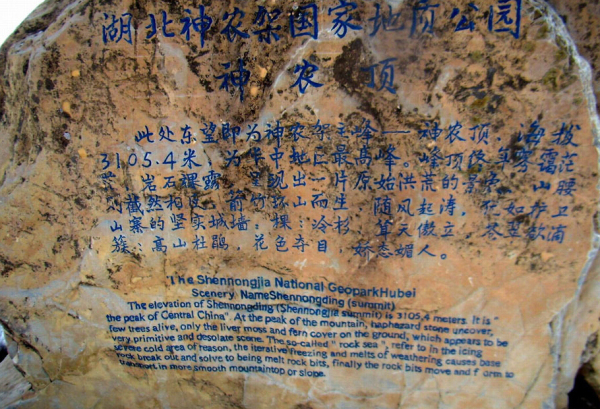 湖北神农架国家地质公园
神农顶
此处东望即为神农架主峰——神农顶，海拔
3105.4米，为华中地区最高峰。峰顶终年雾霭茫
茫，岩石裸露，呈现出一片原始洪荒的景象。山腰
则截然相反，箭竹环山而生，随风起涛，
山寨的坚实城墙；棵棵冷杉，耸天傲立，苍翠欲滴
簇簇高山杜鹃，花色夺目，娇态媚人。
The Shennongjia National GeoparkHubei
Scenery NameShennongding (summit)
The elevation of Shennongding (Shennongjia summit) is 3105.4 meters. It is "
the peak of Central China". At the peak of the mountain, haphazard stone uncover,
few trees alive, only the liver moss and fern cover on the ground, which appears to be
very primitive and desolate scene. The so-called " rock sea ", refer to in the icing
severe cold area of reason, the iterative freezing and melts of weathering causes base
rock break out and solve to being melt rock bits, finally the rock bits move and form to
transport in more smooth mountaintop or slope.